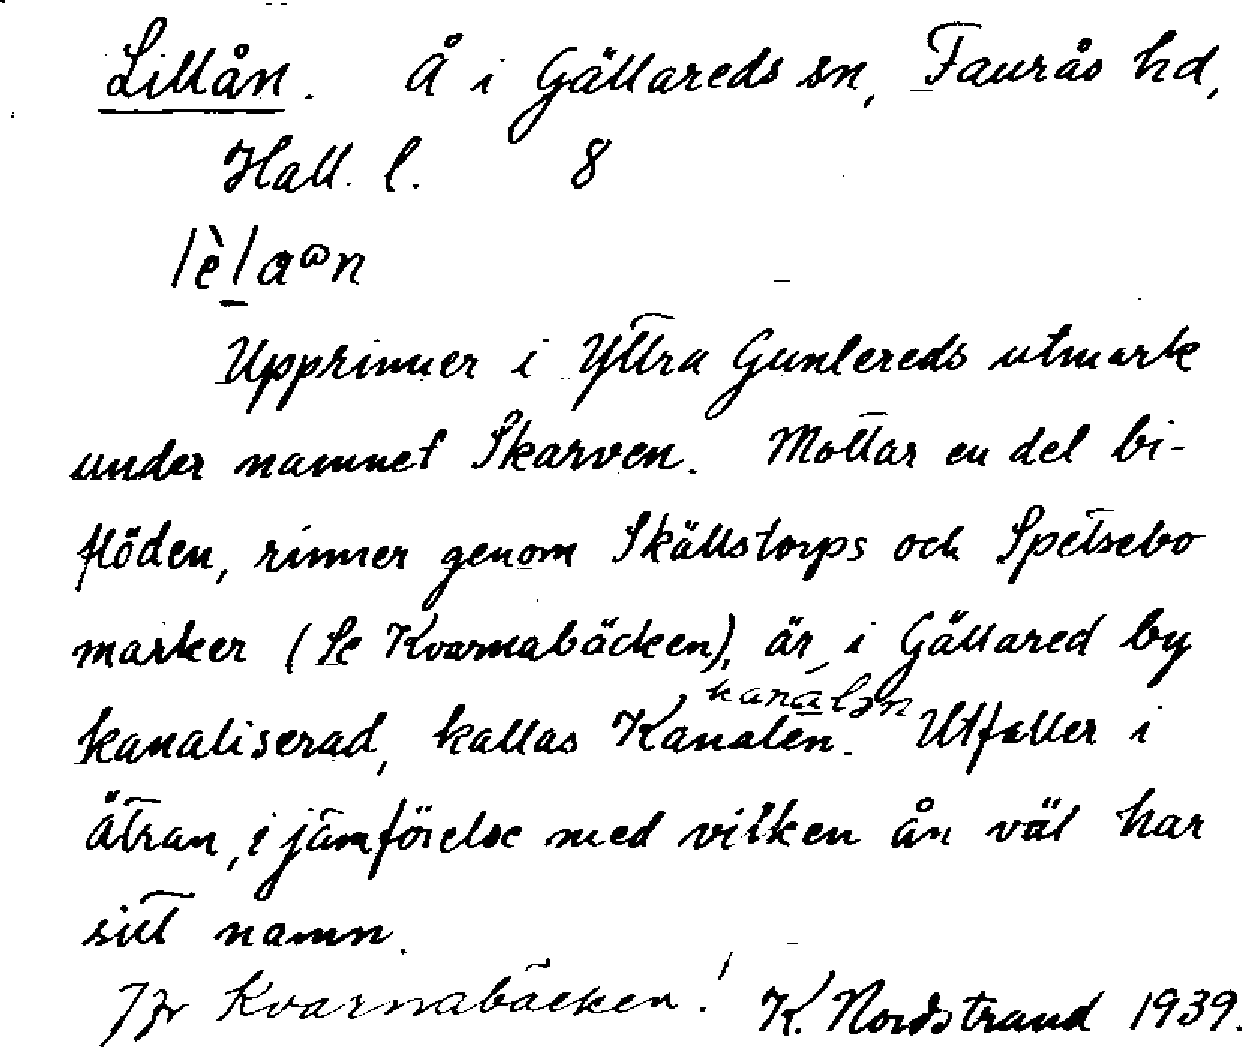 Lillån. Å i Gällareds sn, Faurås hd,
Hall. l. 8
lèla@n
Upprinner i Yttra Gunlereds utmark
under namnet Skarven. Mottar en del bi-
flöden, rinner genom Skällstorps och Spetsebo
marker (Se Kvarnabäcken), är i Gällared by
kanalən
kanaliserad, kallas Kanalen. Utfaller i
Ätran, i jämförelse med vilken ån väl har
sitt namn.
Jfr Kvarnabäcken! K. Nordstrand 1939.